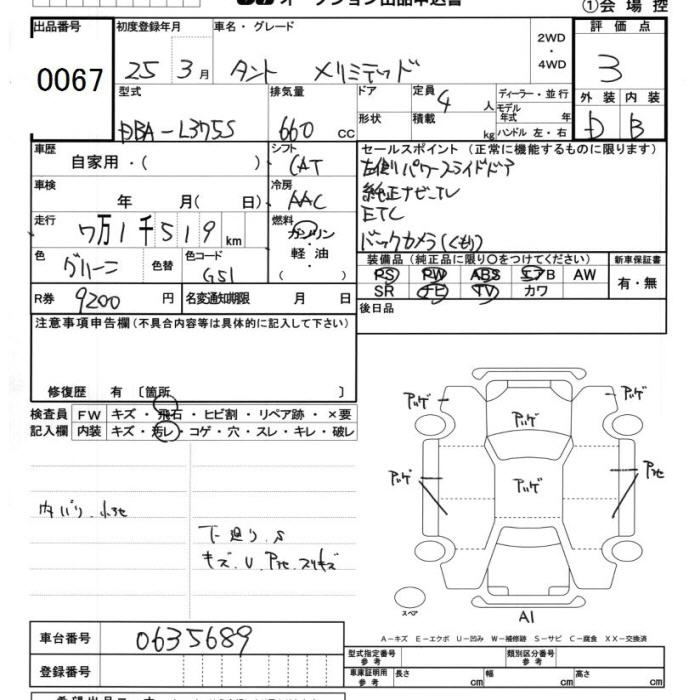 オークション出品申込書
①会場控
出品番号 初度登録年月 車名・グレード 評価点
0067
25 3月 タント メリミテッド 2WD ・ 4WD 3
型式 排気量 ドア 定員 4人 ディーラー・並行 外装 内装
DBA-L375S 660 cc 形状 積載 kg モデル年式 年 ハンドル 左・右 D B
車歴 自家用・( ) シフト CAT セールスポイント (正常に機能するものに限ります)
左側パワースライドドア
車検 年 月( 日) 冷房 AAC 純正ナビ-TV
ETC
走行 7万1千519km 燃料 ガソリン・軽油・( ) バックカメラ(くもり)
色 グリーン 色替 色コード G51
装備品 (純正品に限り○をつけてください) 新車保証書
PS PW ABS エアB AW 有・無
SR ナビ TV カワ
R券 9200円 名変通知期限 月 日 後日品
注意事項申告欄(不具合内容等は具体的に記入して下さい)
修復歴 有 〔箇所 〕
検査員 FW キズ・飛石・ヒビ割・リペア跡・×要
記入欄 内装 キズ・汚レ・コゲ・穴・スレ・キレ・破レ
アリゲ アリゲ
アリゲ
アリゲ アリゲ Pセ
内バリ.小セ
下廻り.S
キズ.U.Pセ.スリキズ
スペア
A1
A-キズ E-エクボ U-凹み W-補修跡 S-サビ C-腐食 XX-交換済
車台番号 0635689
型式指定番号 参考 類別区分番号 参考
登録番号 車庫証明用 参考 長さ cm 幅 cm 高さ cm